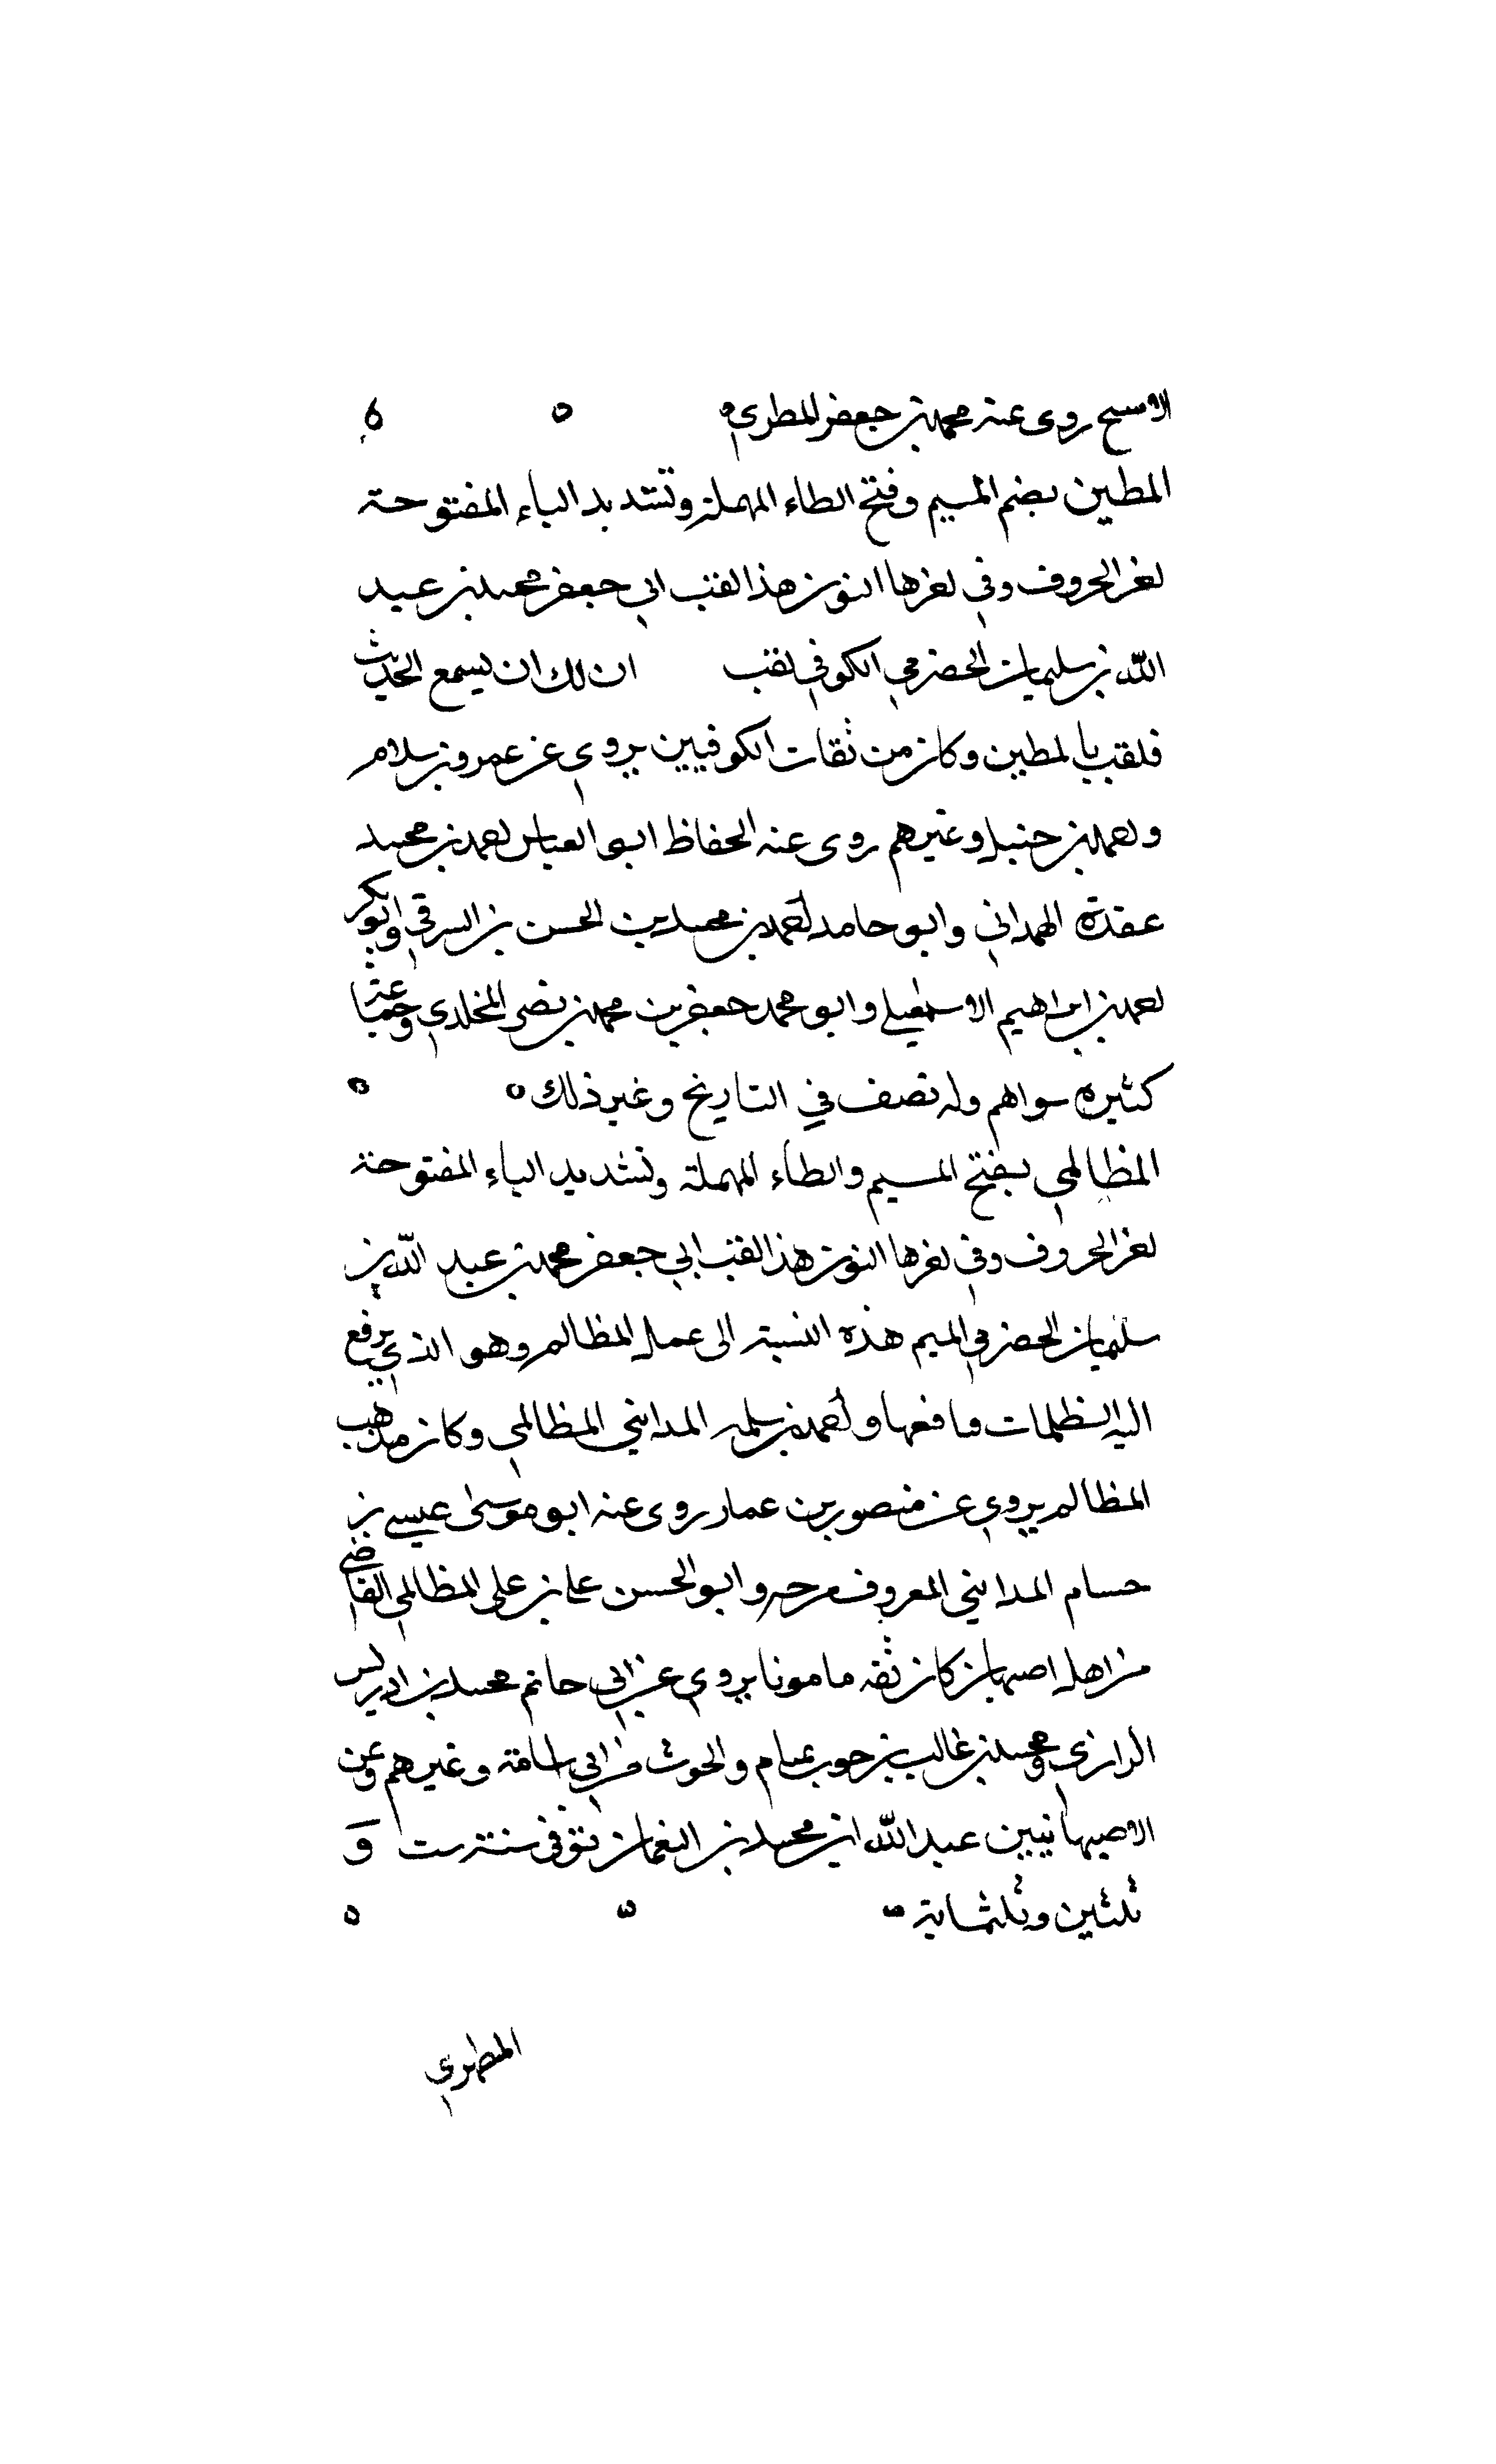 الاسح روى عنه محمد بن جعفر المطري ه ه
المطين بضم الميم وفتح الطاء المهملة وتشديد الياء المفتوحة
اخر الحروف وفي اخرها النون هذا لقب ابي جعفر محمد بن عبد
الله بن سليمان الحضرمي الكوفي لقب ان لك ان يسمع الحديث
فلقب بالمطين وكان من ثقات الكوفيين يروي عن عمرو بن سلام
واحمد بن حنبل وغيرهم روى عنه الحفاظ ابو العباس احمد بن محمد
عقدة الهمداني وابو حامد احمد بن محمد بن الحسن بن السرقي وابو بكر
احمد بن ابراهيم الاسمعيلي وابو محمد جعفر بن محمد بن نصر المخلدي وجماعة
كثيرة سواهم وله تصف في التاريخ وغير ذلك ه ه
المظالمي بفتح الميم والطاء المهملة وتشديد الياء المفتوحة
اخر الحروف وفي اخرها النون هذا لقب ابي جعفر محمد بن عبد الله بن
سليمان الحضرمي الميم هذه النسبة الى عمل المظالم وهو الذي يرفع
اليه الظلمات واحمد بن سلمه المدايني المظالمي وكان مذهب
المظالم يروي عن منصور بن عمار روى عنه ابو موسى عيسى بن
حسام المدايني المعروف وابو الحسن علي بن علي المظالمي القاضي
من اهل اصبهان كان ثقه مامونا يروي عن ابي حاتم محمد بن ادريس
الرازي ومحمد بن غالب بن حرب تمام والحرث بن ابي اسامة وغيرهم وعن
الاصبهانيين عبد الله ابن محمد بن النعمان توفي سنة ست و
ثلثين وثلثماية ه ه ه
المطهري